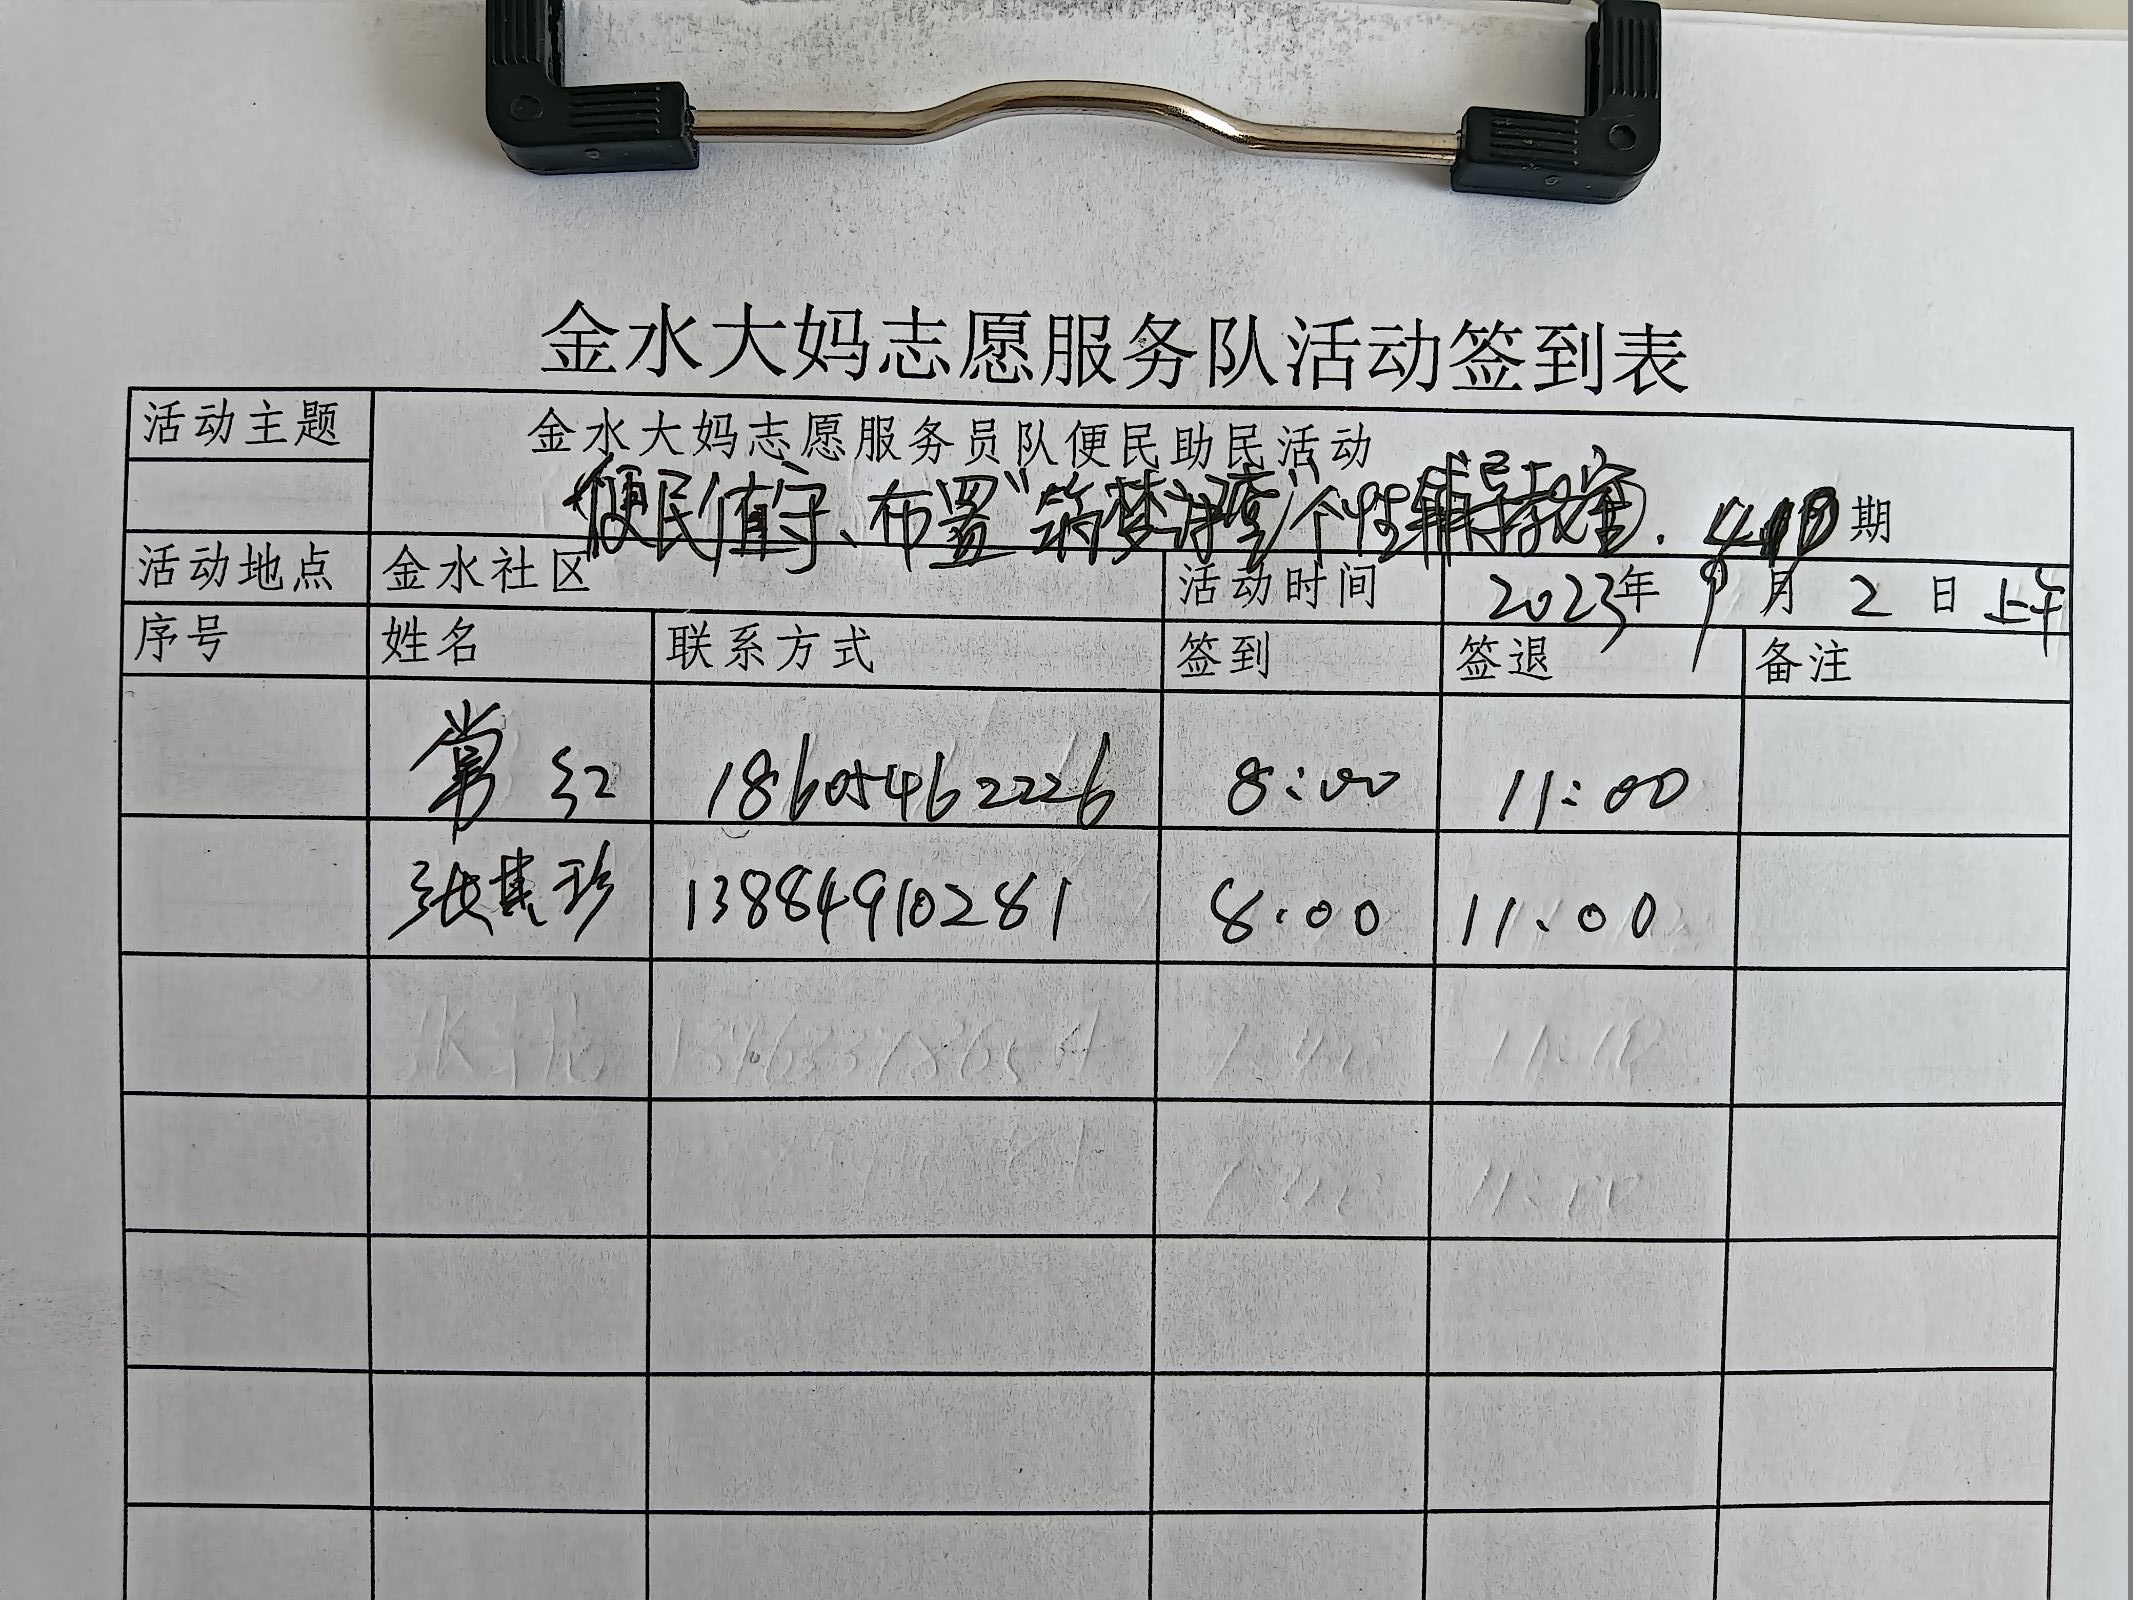 金水大妈志愿服务队活动签到表
活动主题 金水大妈志愿服务员队便民助民活动
便民值守、布置"筑梦港湾"个性辅导教室. 期
活动地点 金水社区 活动时间 2023年 9月 2日 上午
序号 姓名 联系方式 签到 签退 备注
常红 18605462226 8:00 11:00
张其珍 13884910281 8:00 11:00